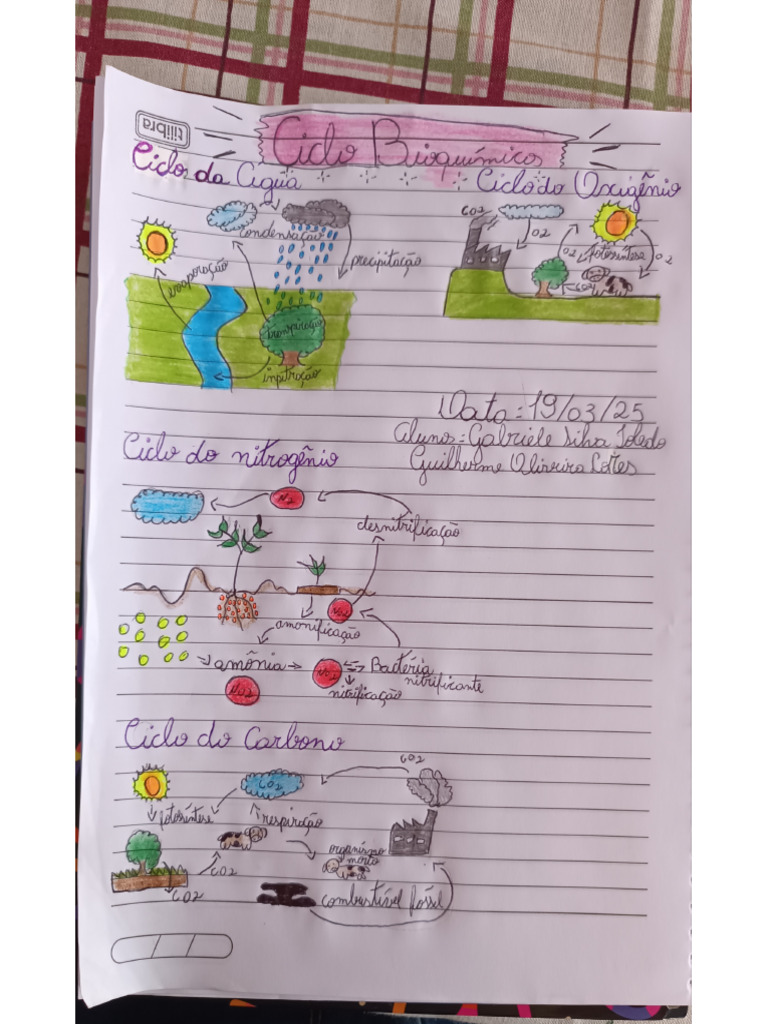 tilibra
Ciclo Bioquímicos
Ciclos da Água
Ciclo do Oxigênio
condensação
precipitação
evaporação
transpiração
CO2
O2
O2
fotossíntese
O2
CO2
Data: 19/03/25
Alunos: Gabriele Silva Toledo
Guilherme Oliveira Cortes
Ciclo do nitrogênio
N2
desnitrificação
NO2
amonificação
amônia
NO2
Bactéria
nitrificante
nitrificação
NO2
Ciclo do Carbono
CO2
CO2
fotosíntese
respiração
organismo
morto
CO2
CO2
combustível fóssil